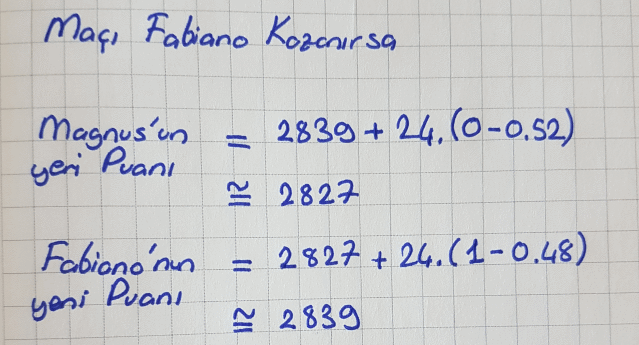 Maçı Fabiano Kazanırsa
Magnus'un yeni Puanı = 2839 + 24.(0-0.52)
≅ 2827
Fabiano'nun yeni Puanı = 2827 + 24.(1-0.48)
≅ 2839